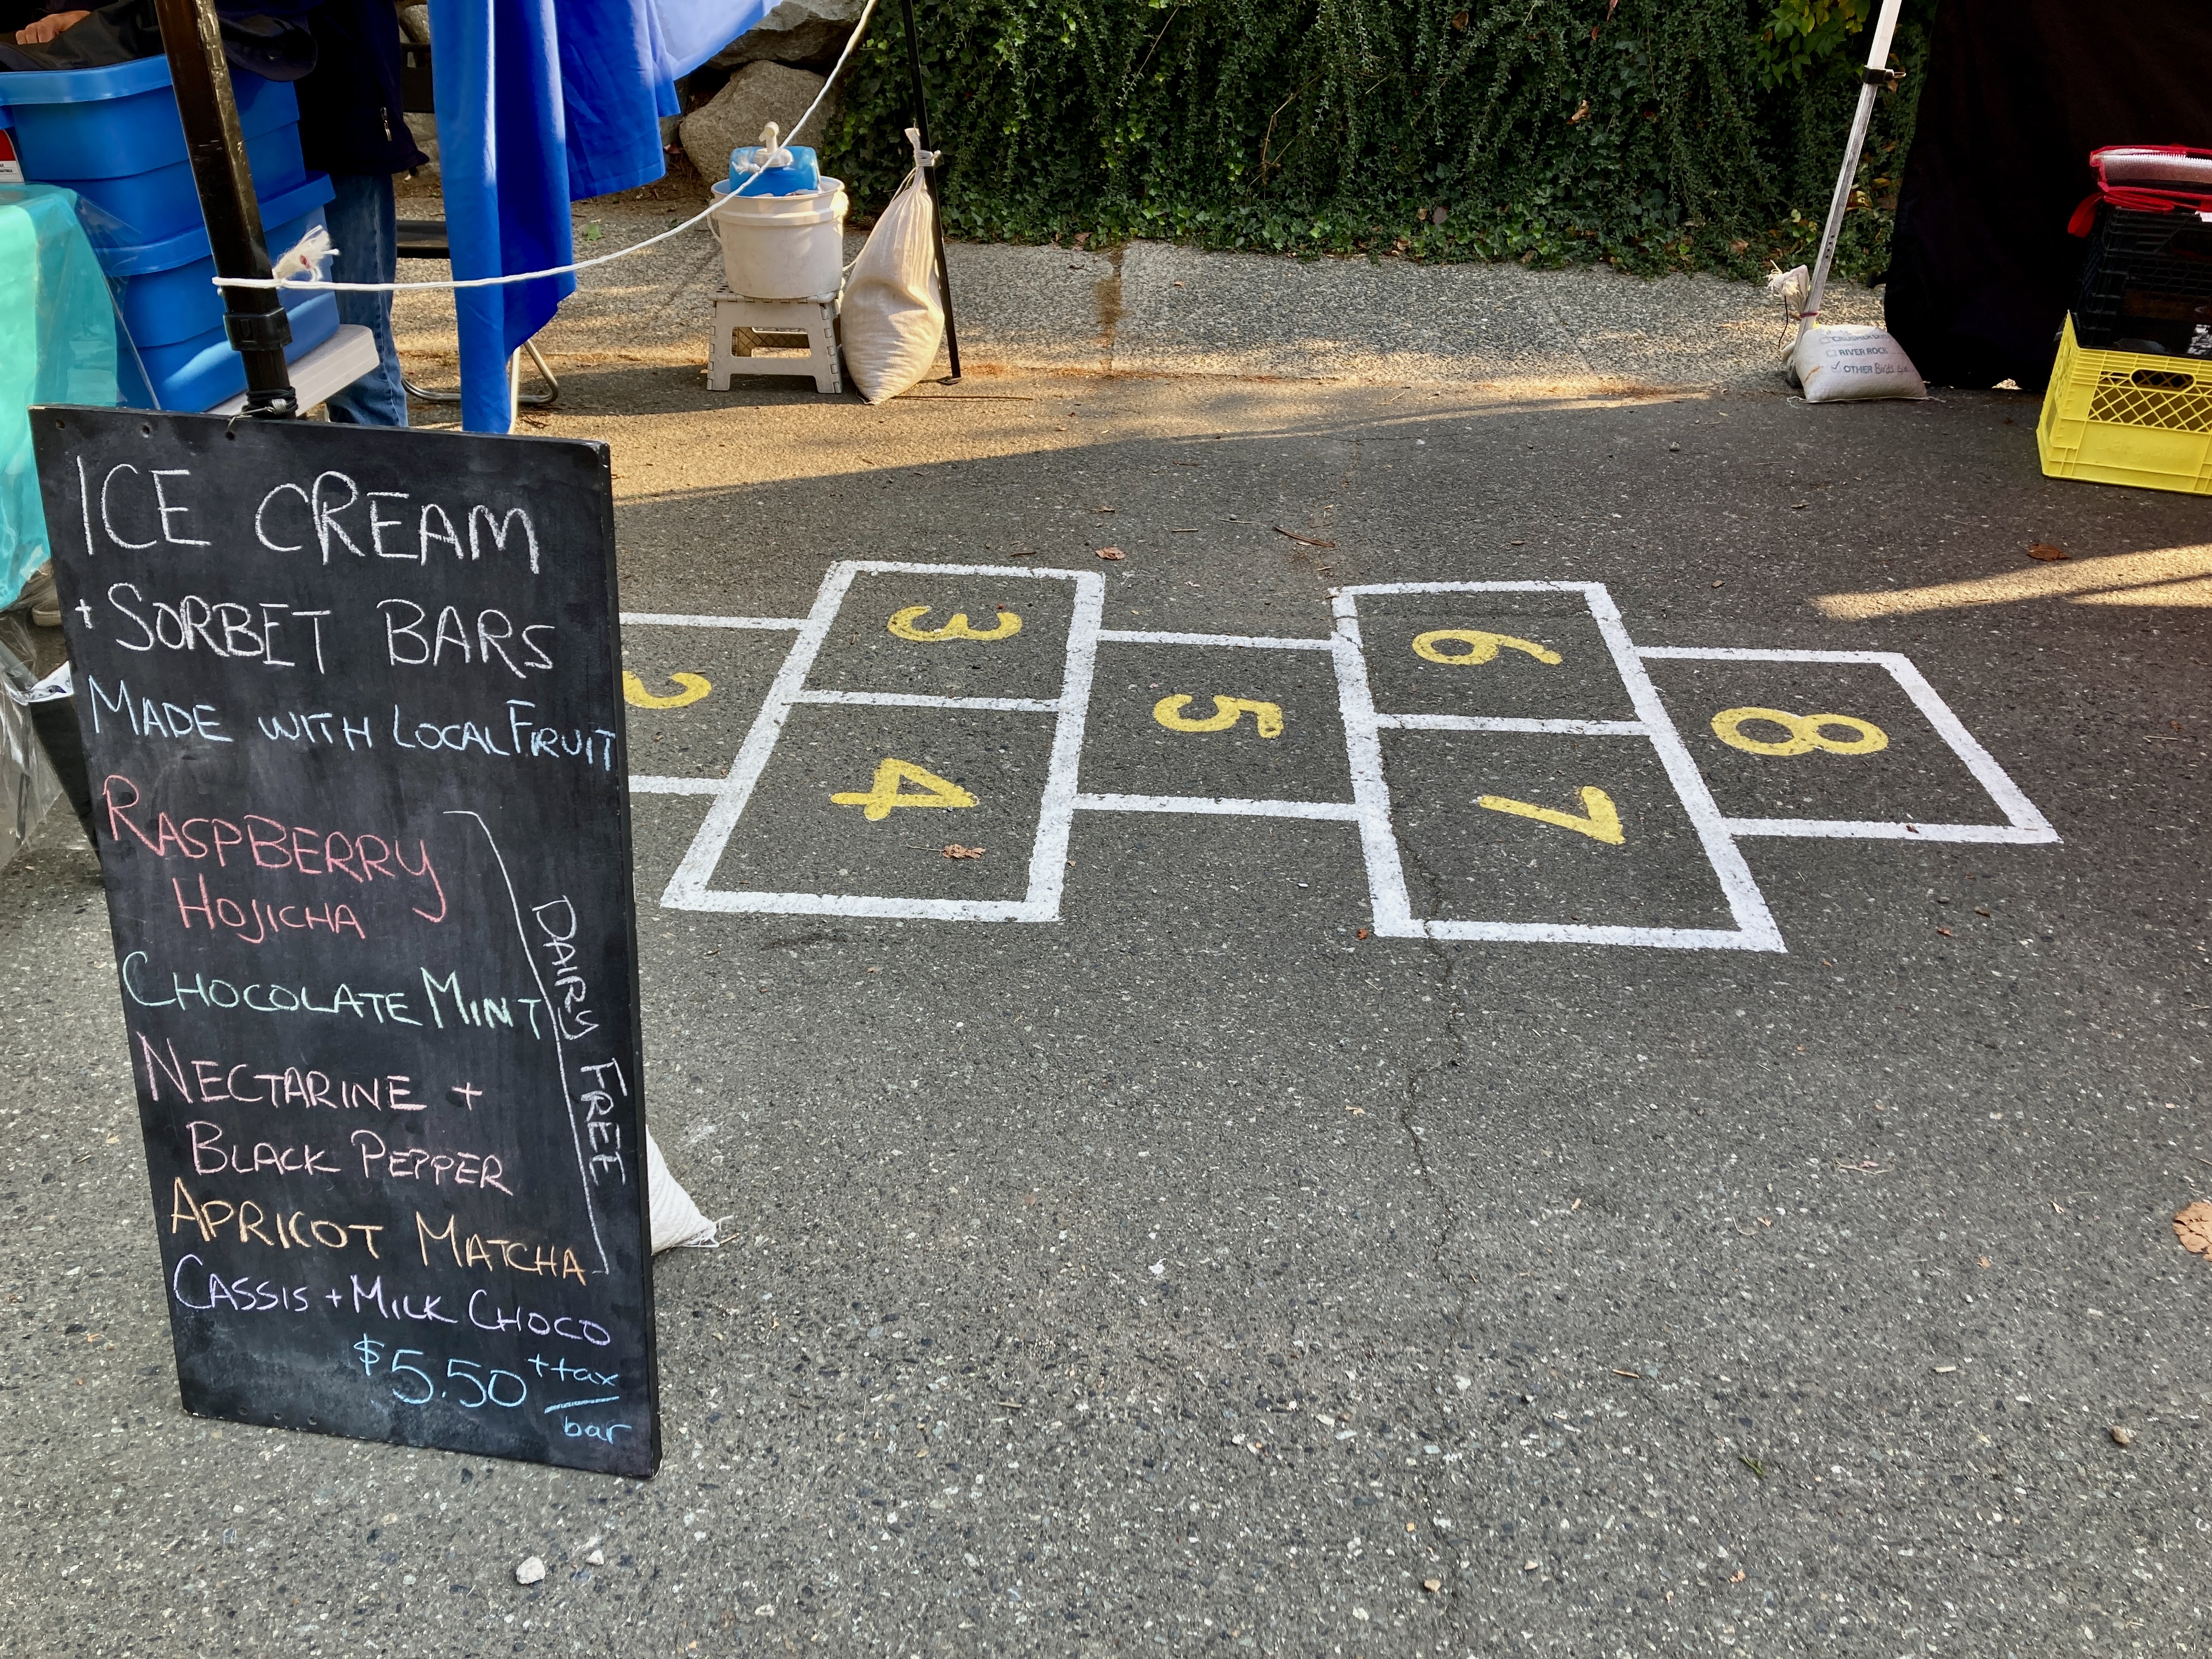 ICE CREAM
+ SORBET BARS
MADE WITH LOCAL FRUIT
RASPBERRY
HOJICHA
CHOCOLATE MINT
NECTARINE +
BLACK PEPPER
APRICOT MATCHA
DAIRY FREE
CASSIS + MILK CHOCO
$5.50 + tax
bar
2
3
4
5
6
7
8
RIVER ROCK
OTHER